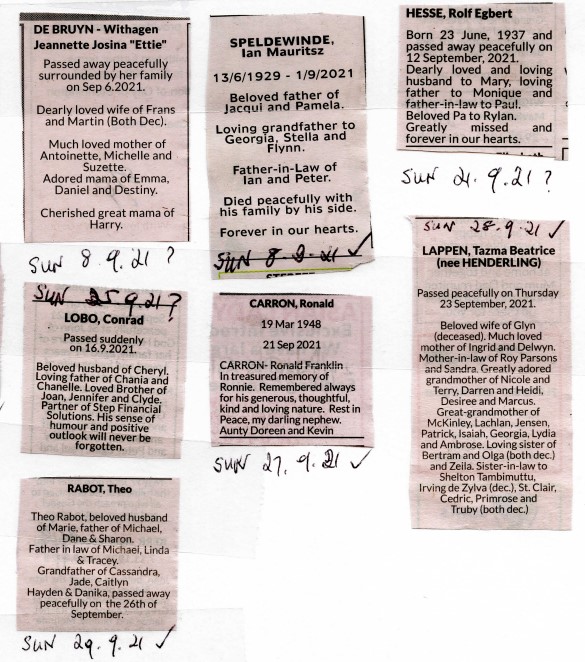 DE BRUYN - Withagen
Jeannette Josina "Ettie"
Passed away peacefully
surrounded by her family
on Sep 6.2021.
Dearly loved wife of Frans
and Martin (Both Dec).
Much loved mother of
Antoinette, Michelle and
Suzette.
Adored mama of Emma,
Daniel and Destiny.
Cherished great mama of
Harry.
SUN 8.9.21 ?
SPELDEWINDE,
Ian Mauritsz
13/6/1929 - 1/9/2021
Beloved father of
Jacqui and Pamela.
Loving grandfather to
Georgia, Stella and
Flynn.
Father-in-Law of
Ian and Peter.
Died peacefully with
his family by his side.
Forever in our hearts.
SUN 8.9.21 ✓
HESSE, Rolf Egbert
Born 23 June, 1937 and
passed away peacefully on
12 September, 2021.
Dearly loved and loving
husband to Mary, loving
father to Monique and
father-in-law to Paul.
Beloved Pa to Rylan.
Greatly missed and
forever in our hearts.
SUN 21.9.21 ?
SUN 25.9.21 ?
LOBO, Conrad
Passed suddenly
on 16.9.2021.
Beloved husband of Cheryl,
Loving father of Chania and
Chanelle. Loved Brother of
Joan, Jennifer and Clyde.
Partner of Step Financial
Solutions. His sense of
humour and positive
outlook will never be
forgotten.
CARRON, Ronald
19 Mar 1948
21 Sep 2021
CARRON- Ronald Franklin
In treasured memory of
Ronnie. Remembered always
for his generous, thoughtful,
kind and loving nature. Rest in
Peace, my darling nephew.
Aunty Doreen and Kevin
SUN 27.9.21 ✓
SUN 28.9.21 ✓
LAPPEN, Tazma Beatrice
(nee HENDERLING)
Passed peacefully on Thursday
23 September, 2021.
Beloved wife of Glyn
(deceased). Much loved
mother of Ingrid and Delwyn.
Mother-in-law of Roy Parsons
and Sandra. Greatly adored
grandmother of Nicole and
Terry, Darren and Heidi,
Desiree and Marcus.
Great-grandmother of
McKinley, Lachlan, Jensen,
Patrick, Isaiah, Georgia, Lydia
and Ambrose. Loving sister of
Bertram and Olga (both dec.)
and Zeila. Sister-in-law to
Shelton Tambimuttu,
Irving de Zylva (dec.), St. Clair,
Cedric, Primrose and
Truby (both dec.)
RABOT, Theo
Theo Rabot, beloved husband
of Marie, father of Michael,
Dane & Sharon.
Father in law of Michael, Linda
& Tracey.
Grandfather of Cassandra,
Jade, Caitlyn
Hayden & Danika, passed away
peacefully on the 26th of
September.
SUN 29.9.21 ✓